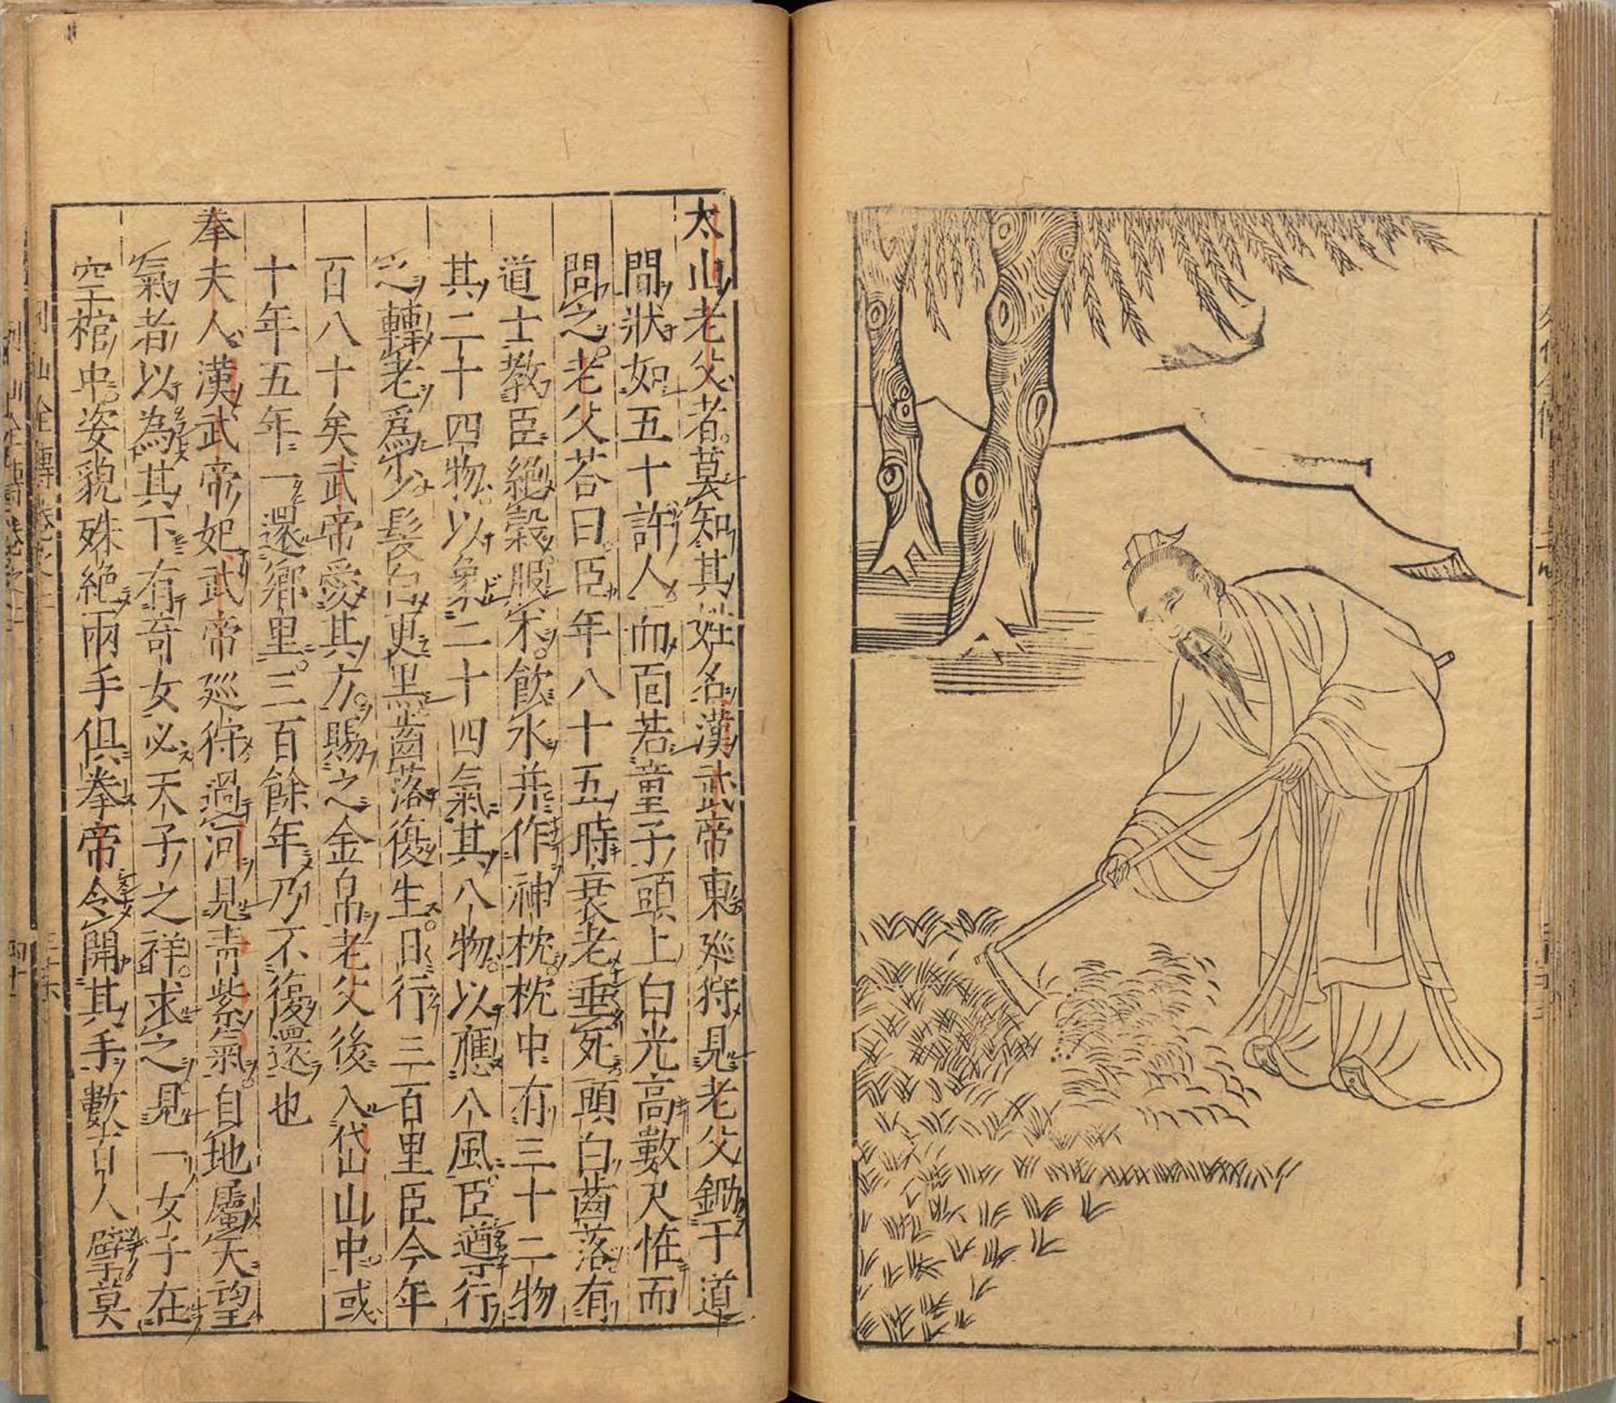 太山老父者莫知其姓名漢武帝東廵狩見老父鋤于道
間狀如五十許人而靣若童子頭上白光高數尺恠而
問之老父荅曰臣年八十五時衰老垂死頭白齒落有
道士教臣絕穀服朮飲水并作神枕枕中有三十二物
其二十四物以象二十四氣其八物以應八風臣遵行
之轉老爲少髮白更黒齒落復生日行三百里臣今年
百八十矣武帝愛其方賜之金帛老父後入岱山中或
十年五年一還鄉里三百餘年乃不復還也
拳夫人漢武帝妃武帝廵狩過河見青紫氣自地屬天望
氣者以為其下有奇女必天子之祥求之見一女子在
空棺中姿貌殊絕兩手俱拳帝令開其手數百人擘莫
列仙全傳卷之二